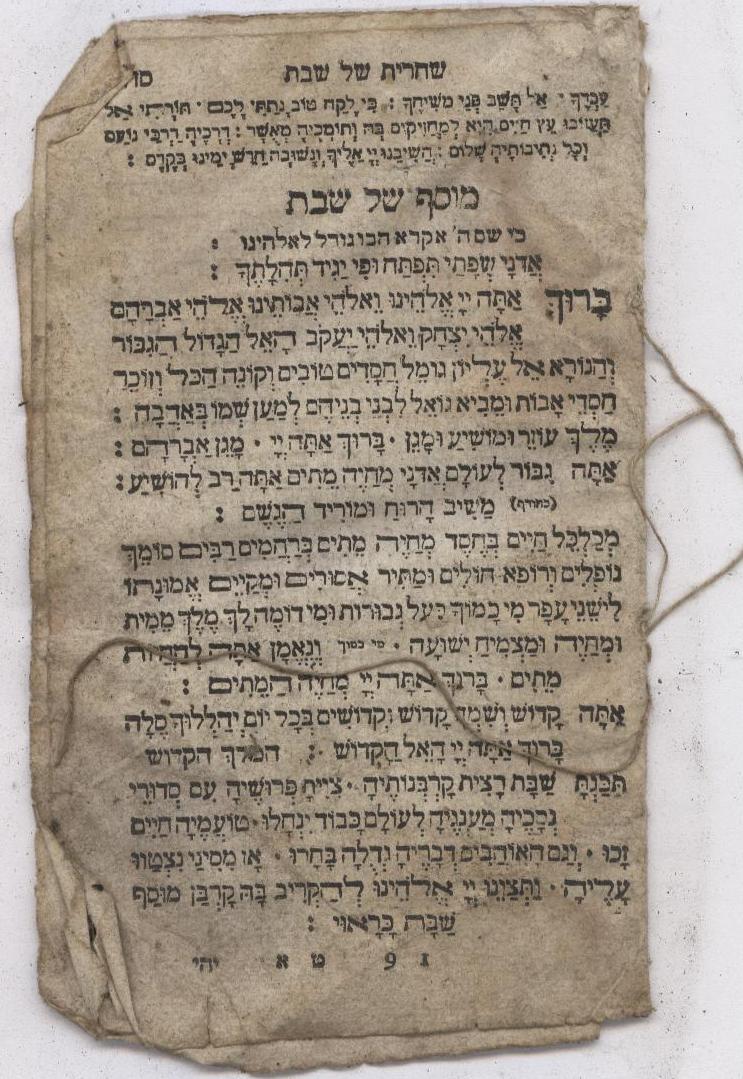 שחרית של שבת סד
עַבְדֶּךָ אַל תָּשֵׁב פְּנֵי מְשִׁיחֶךָ : כִּי לֶקַח טוֹב נָתַתִּי לָכֶם · תּוֹרָתִי אַל
תַּעֲזוֹבוּ עֵץ חַיִּים הִיא לַמַּחֲזִיקִים בָּהּ וְתוֹמְכֶיהָ מְאֻשָּׁר : דְּרָכֶיהָ דַּרְכֵי נוֹעַם
וְכָל נְתִיבוֹתֶיהָ שָׁלוֹם : הֲשִׁיבֵנוּ יְיָ אֵלֶיךָ וְנָשׁוּבָה חַדֵּשׁ יָמֵינוּ כְּקֶדֶם :
מוסף של שבת
כי שם ה' אקרא הבו גודל לאלהינו :
אֲדֹנָי שְׂפָתַי תִּפְתָּח וּפִי יַגִּיד תְּהִלָּתֶךָ :
בָּרוּךְ אַתָּה יְיָ אֱלֹהֵינוּ וֵאלֹהֵי אֲבוֹתֵינוּ אֱלֹהֵי אַבְרָהָם
אֱלֹהֵי יִצְחָק וֵאלֹהֵי יַעֲקֹב הָאֵל הַגָּדוֹל הַגִּבּוֹר
וְהַנּוֹרָא אֵל עֶלְיוֹן גּוֹמֵל חֲסָדִים טוֹבִים וְקוֹנֵה הַכֹּל וְזוֹכֵר
חַסְדֵי אָבוֹת וּמֵבִיא גוֹאֵל לִבְנֵי בְנֵיהֶם לְמַעַן שְׁמוֹ בְּאַהֲבָה :
מֶלֶךְ עוֹזֵר וּמוֹשִׁיעַ וּמָגֵן · בָּרוּךְ אַתָּה יְיָ · מָגֵן אַבְרָהָם :
אַתָּה גִּבּוֹר לְעוֹלָם אֲדֹנָי מְחַיֵּה מֵתִים אַתָּה רַב לְהוֹשִׁיעַ :
(בחורף) מַשִּׁיב הָרוּחַ וּמוֹרִיד הַגֶּשֶׁם :
מְכַלְכֵּל חַיִּים בְּחֶסֶד מְחַיֵּה מֵתִים בְּרַחֲמִים רַבִּים סוֹמֵךְ
נוֹפְלִים וְרוֹפֵא חוֹלִים וּמַתִּיר אֲסוּרִים וּמְקַיֵּים אֱמוּנָתוֹ
לִישֵׁנֵי עָפָר מִי כָמוֹךָ בַּעַל גְּבוּרוֹת וּמִי דוֹמֶה לָּךְ מֶלֶךְ מֵמִית
וּמְחַיֶּה וּמַצְמִיחַ יְשׁוּעָה · מי כמוך וְנֶאֱמָן אַתָּה לְהַחֲיוֹת
מֵתִים · בָּרוּךְ אַתָּה יְיָ מְחַיֵּה הַמֵּתִים :
אַתָּה קָדוֹשׁ וְשִׁמְךָ קָדוֹשׁ וּקְדוֹשִׁים בְּכָל יוֹם יְהַלְלוּךָ סֶּלָה
בָּרוּךְ אַתָּה יְיָ הָאֵל הַקָּדוֹשׁ : המלך הקדוש
תִּכַּנְתָּ שַׁבָּת רָצִיתָ קָרְבְּנוֹתֶיהָ · צִיִּיתָ פֵּרוּשֶׁיהָ עִם סִדּוּרֵי
נְסָכֶיהָ מְעַנְּגֶיהָ לְעוֹלָם כָּבוֹד יִנְחָלוּ · טוֹעֲמֶיהָ חַיִּים
זָכוּ · וְגַם הָאוֹהֲבִים דְּבָרֶיהָ גְּדֻלָּה בָּחָרוּ · אָז מִסִּינַי נִצְטַוּוּ
עָלֶיהָ · וַתְּצַוֵּנוּ יְיָ אֱלֹהֵינוּ לְהַקְרִיב בָּהּ קָרְבַּן מוּסַף
שַׁבָּת כָּרָאוּי :
1 9 ט א יהי